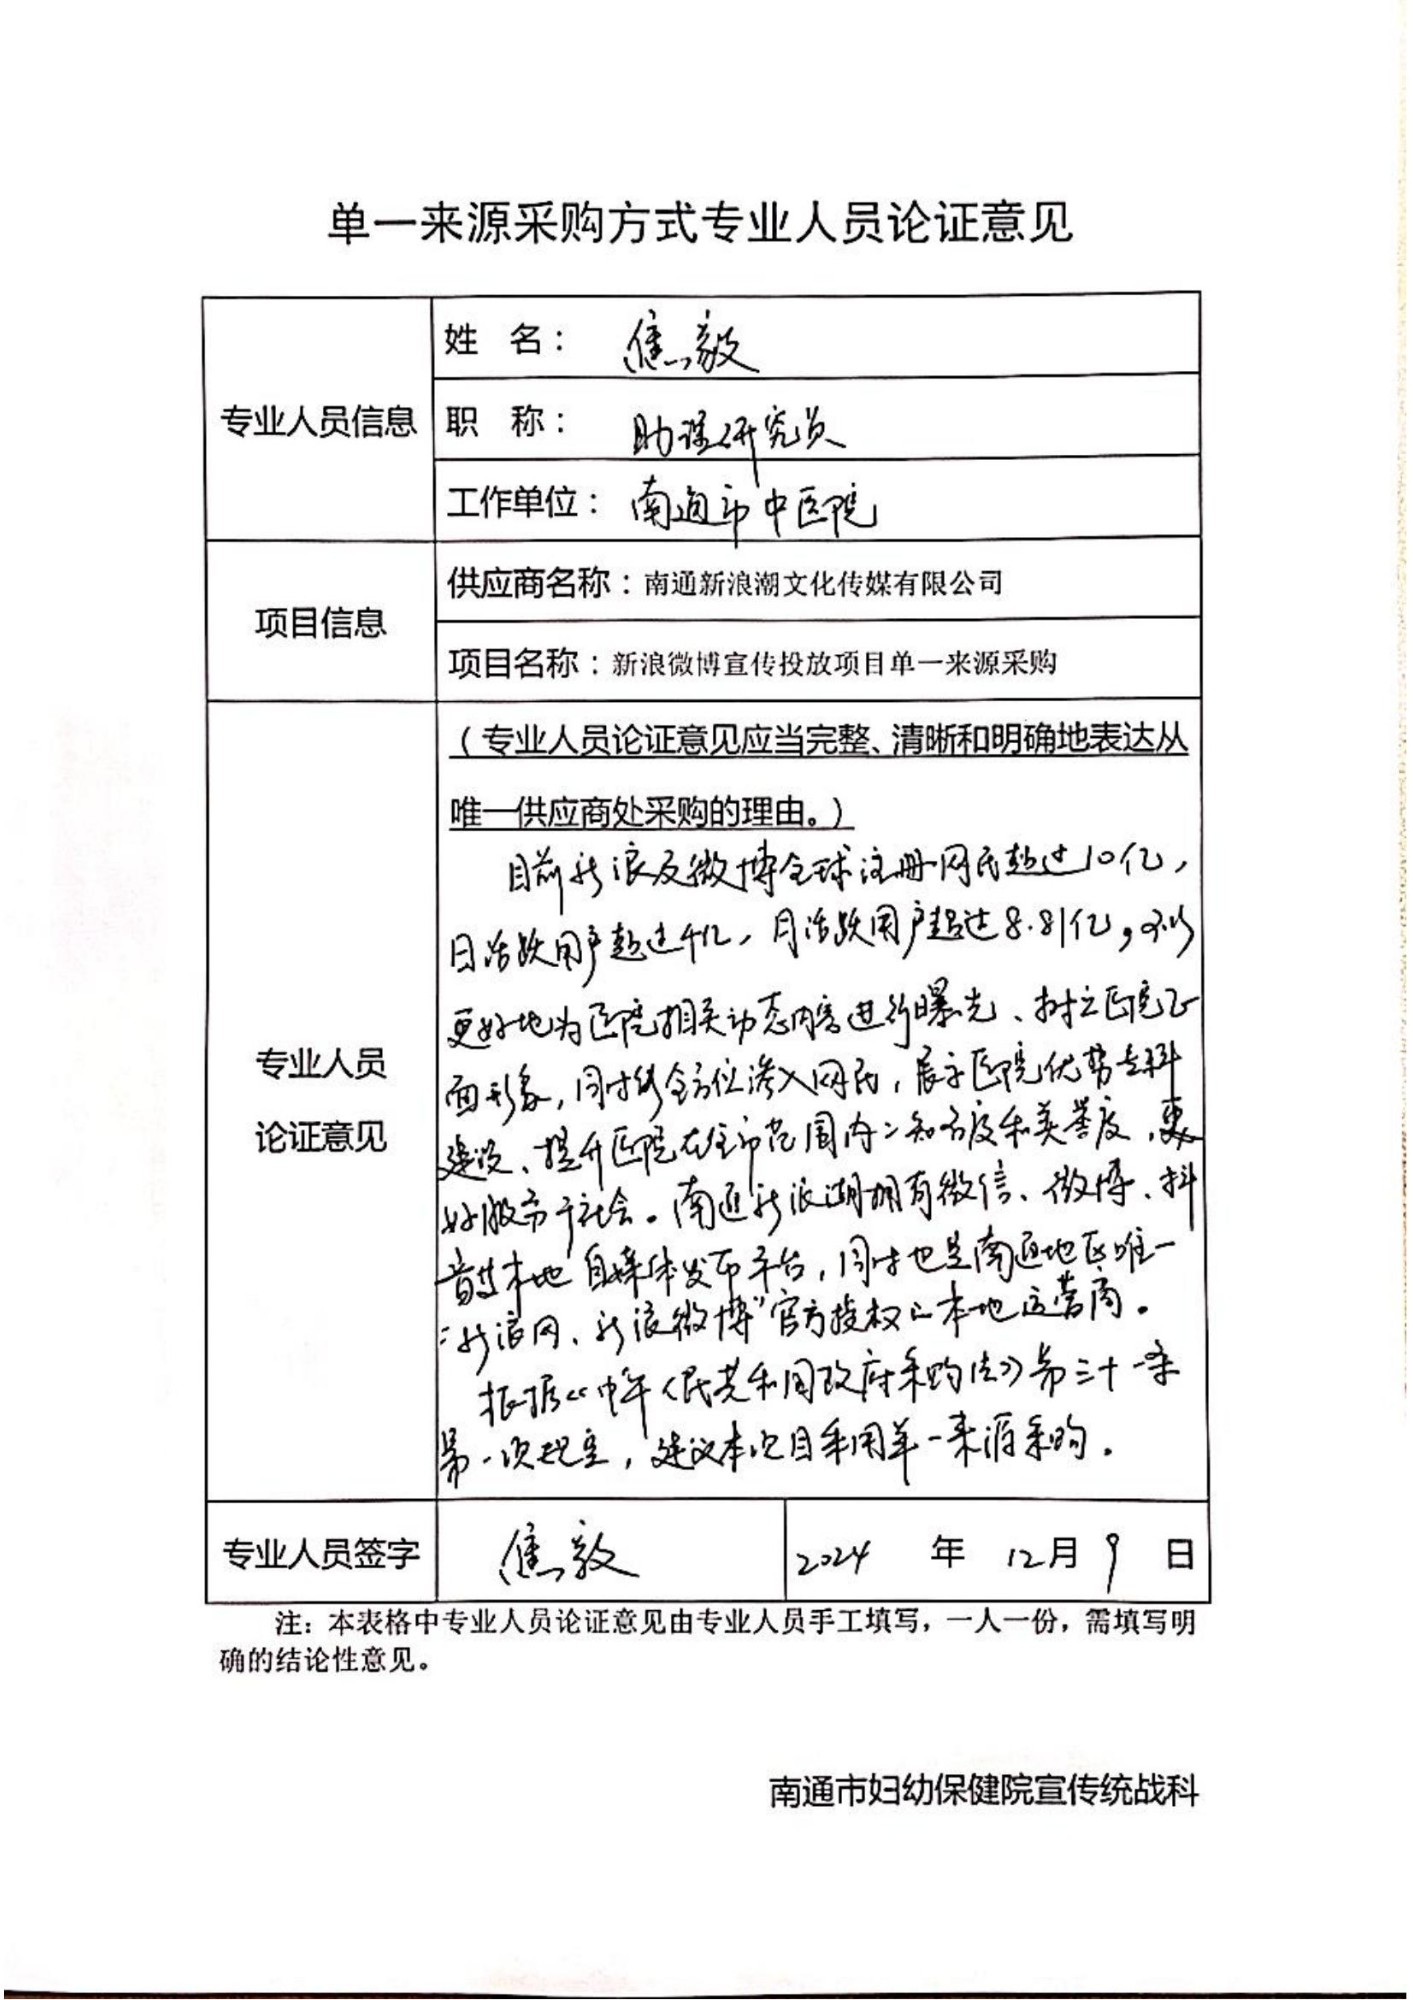 单一来源采购方式专业人员论证意见
专业人员信息
姓 名： 焦毅
职 称： 助理研究员
工作单位： 南通市中医院
项目信息
供应商名称：南通新浪潮文化传媒有限公司
项目名称：新浪微博宣传投放项目单一来源采购
专业人员
论证意见
（专业人员论证意见应当完整、清晰和明确地表达从
唯一供应商处采购的理由。）
目前新浪及微博全球注册网民超过10亿，
日活跃用户超过4亿，月活跃用户超过8.81亿，可以
更好地为医院相关动态内容进行曝光、树立医院正
面形象，同时能全方位渗入网民，展示医院优势专科
建设、提升医院在全市范围内的知名度和美誉度，更
好服务于社会。南通新浪潮拥有微信、微博、抖
音等本地自媒体发布平台，同时也是南通地区唯一
“新浪网、新浪微博”官方授权的本地运营商。
根据《中华人民共和国政府采购法》第三十一条
第一次规定，建议本次目采用单一来源采购。
专业人员签字
焦毅
2024 年 12月 9 日
注：本表格中专业人员论证意见由专业人员手工填写，一人一份，需填写明
确的结论性意见。
南通市妇幼保健院宣传统战科